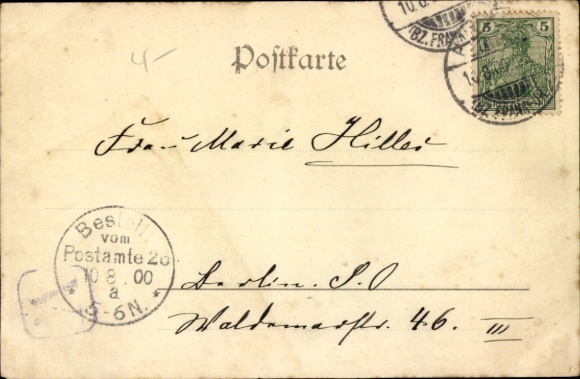 10.8.
(BZ. FRANKF
5 5
10.8.
(BZ. FRANKF
4-
Postkarte
Frau Marie Hiller
Bestellt
vom
Postamte 26
10 8 00
a
* 5-6N. *
Berlin. S. O
Waldemarstr. 46. III